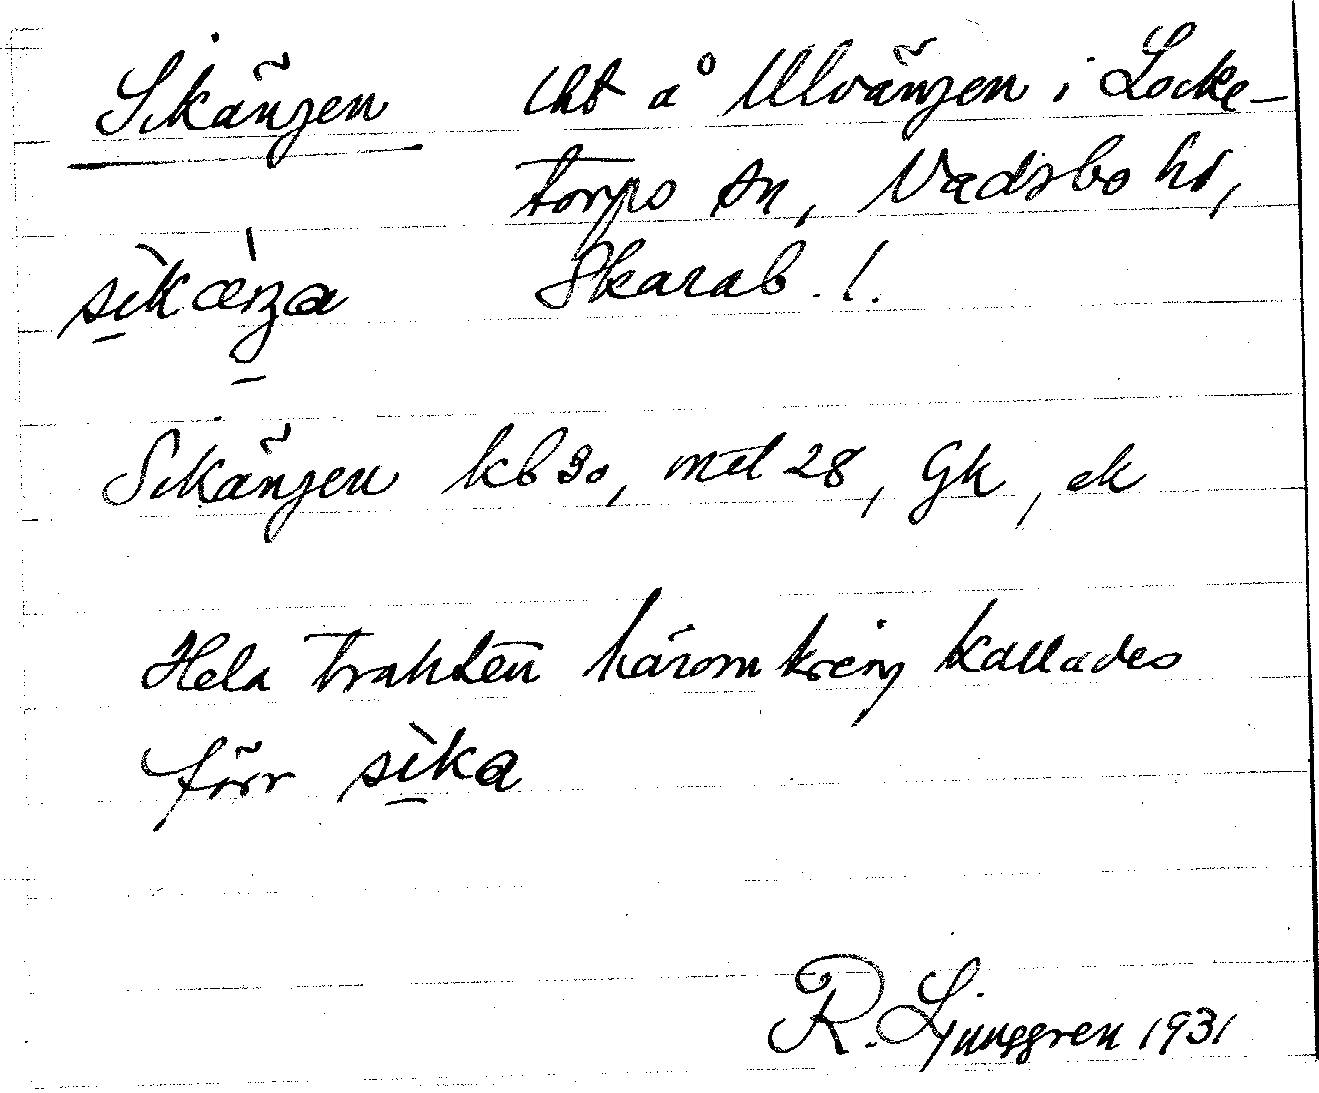 Sikängen lht å Ulvängen i Locke-
torps sn, Vadsbo hd,
sìkæ̀ŋa Skarab. l.
Sikängen kb 30, mtl 28, Gk, ek
Hela trakten häromkring kallades
förr sìka
R. Ljunggren 1931